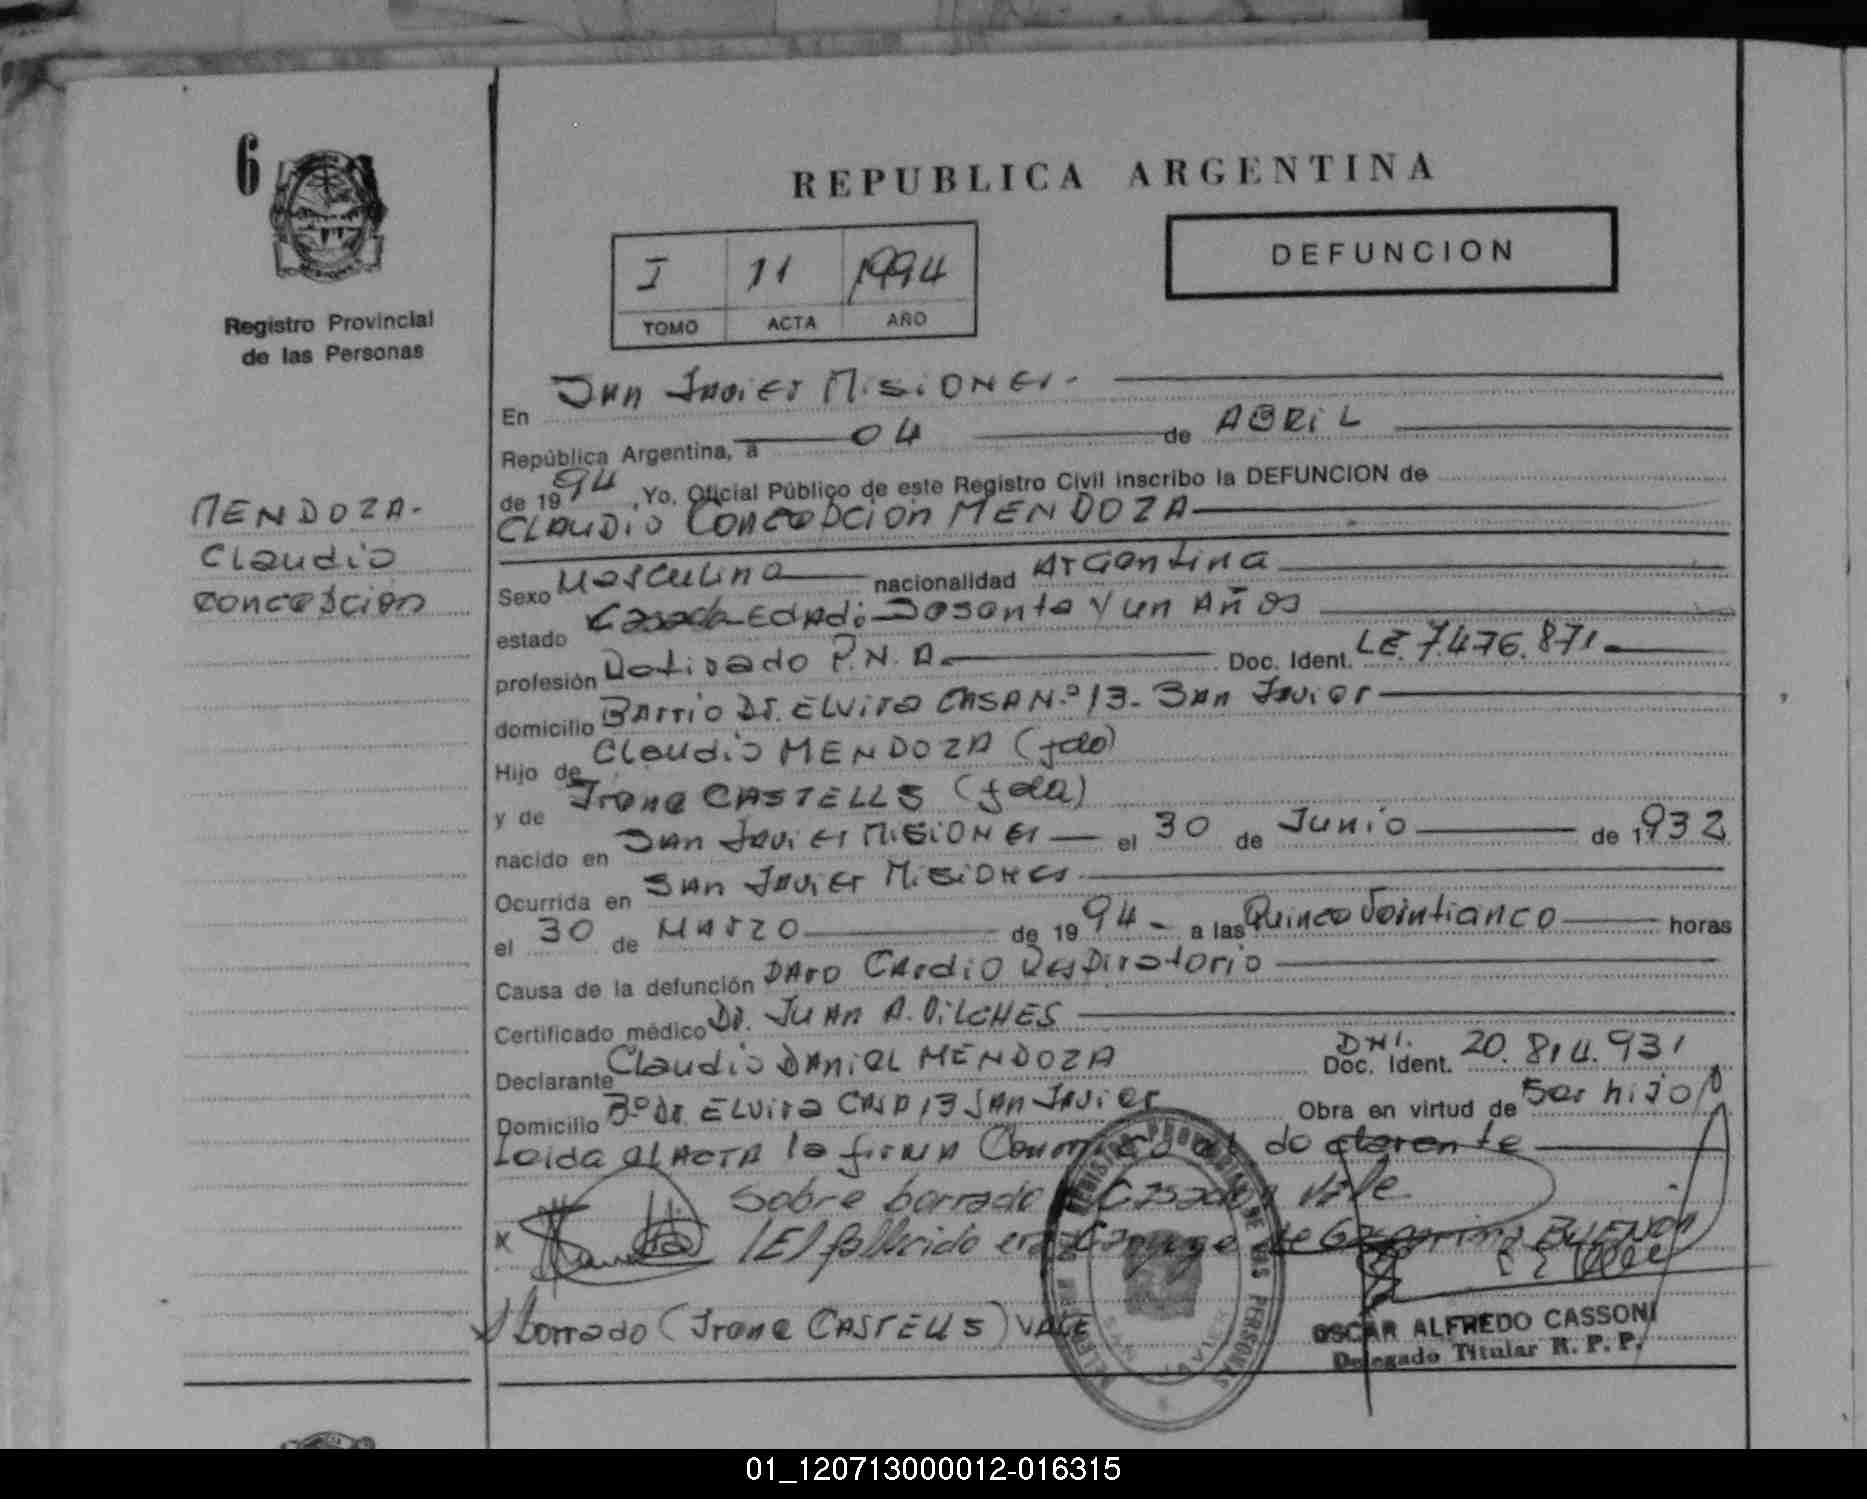 6
REPUBLICA ARGENTINA
DEFUNCION
I 11 1994
TOMO ACTA AÑO
Registro Provincial
de las Personas
MENDOZA.
Claudio
concepcion
En San Javier Misiones.
República Argentina, a 04 de ABRIL
de 1994, Yo, Oficial Público de este Registro Civil inscribo la DEFUNCION de
CLAUDIO Concepcion MENDOZA
Sexo Masculino nacionalidad Argentina
estado Casado EDAD: Sesenta y un Años
profesión Retirado P.N.A. Doc. Ident. LE. 7.476.871
domicilio Barrio Dr. Elvira CASA N.º 13. San Javier
Hijo de Claudio MENDOZA (fdo)
y de Irene CASTELLS (fda)
nacido en San Javier Misiones el 30 de Junio de 1932
Ocurrida en San Javier Misiones
el 30 de Marzo de 1994 a las Quince Veinticinco horas
Causa de la defunción Paro Cardio Respiratorio
Certificado médico Dr. Juan A. VILCHES
Declarante Claudio Daniel MENDOZA DNI. Doc. Ident. 20.814.931
Domicilio Bº Dr. Elvira Casa 13 San Javier Obra en virtud de Ser hijo
Leida el Acta la firma Conmigo el declarante
Sobre borrado Casado Vale
X (El fallecido era Conyuge de
borrado (Irene CASTELLS) VALE
REGISTRO PROVINCIAL DE LAS PERSONAS
SAN JAVIER
OSCAR ALFREDO CASSONI
Delegado Titular R. P. P.
01_120713000012-016315